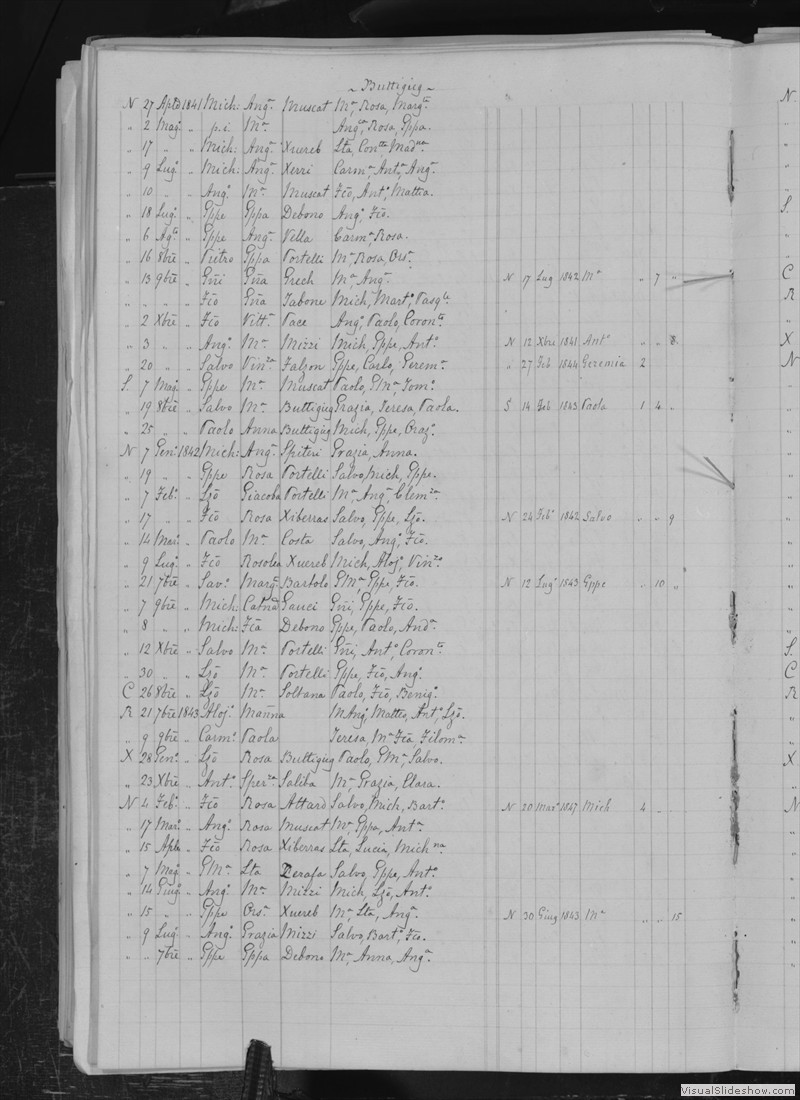 ~ Buttigieg ~
N 27 Aple 1841 Mich: Angª Muscat Mª, Rosa, Margta
„ 2 Magº „ p.i Mª Angca, Rosa, Gppa.
„ 17 „ „ Mich: Angª Xuereb Lta, Concta Madna
„ 9 Lugº „ Mich: Angª Xerri Carmª, Antª, Angª
„ 10 „ „ Angº Mª Muscat Fco, Antº, Mattea.
„ 18 Lugº „ Gppe Gppa Debono Angº, Fco.
„ 6 Agto „ Gppe Angª Vella Carmª, Rosa.
„ 16 8bre „ Pietro Gppa Portelli Mª, Rosa, Orsª
„ 13 9bre „ Gnni Gnna Grech Mª, Angª N 17 Lug 1842 Mª „ 7 „
„ „ „ „ Fco Gnna Tabone Mich, Martº, Pasqle
„ 2 Xbre „ Fco Vittª Pace Angº, Paolo, Coronta
„ 3 „ „ Angº Mª Mizzi Mich, Gppe, Antº N 12 Xbre 1841 Antº „ „ 8.
„ 20 „ „ Salvo Vinza Falzon Gppe, Carlo, Geremª „ 27 Feb 1844 Geremia 2
S. 7 Magº „ Gppe Mª Muscat Paolo, GMª, Tomº
„ 19 8bre „ Salvo Mª Buttigieg Grazia, Teresa, Paola. S 14 Feb 1843 Paola 1 4 „
„ 25 „ „ Paolo Anna Buttigieg Mich, Gppe, Orazº
N 7 Genº 1842 Mich: Angª Spiteri Grazia, Anna.
„ 19 „ „ Gppe Rosa Portelli Salvo, Mich, Gppe.
„ 7 Febº „ Lzo Giacoba Portelli Mª, Angª, Clemza
„ 17 „ „ Fco Rosa Xiberras Salvo, Gppe, Lzo. N 24 Febº 1842 Salvo „ „ 9
„ 14 Marº „ Paolo Mª Costa Salvo, Angº, Fco.
„ 9 Lugº „ Fco Rosolea Xuereb Mich, Alojº, Vinzo
„ 21 7bre „ Savº Margta Bartolo GMª, Gppe, Fco. N 12 Lugº 1843 Gppe „ 10 „
„ 7 9bre „ Mich: Catna Gauci Gnni, Gppe, Fco.
„ 8 „ „ Mich: Fca Debono Gppe, Paolo, Andª
„ 12 Xbre „ Salvo Mª Portelli Gnni, Antº, Coronto
„ 30 „ „ Lzo Mª Portelli Gppe, Fco, Angº
C 26 8bre „ Lzo Mª Soltana Paolo, Fco, Benigº
R 21 7bre 1843 Alojº Manna MAngª, Matteo, Antº, Lzo.
„ 9 9bre „ Carmº Paola Teresa, Mª Fca Filomª
X 28 Genº „ Lzo Rosa Buttigieg Paolo, GMª, Salvo.
„ 23 Xbre „ Antº Sperza Saliba Mª, Grazia, Clara.
N 4 Febº „ Fco Rosa Attard Salvo, Mich, Bartº N 20 Marº 1847 Mich 4 „ „
„ 17 Marº „ Angº Rosa Muscat Mª, Gppa, Antª
„ 15 Aple „ Fco Rosa Xiberras Lta, Lucia, Michna
„ 7 Magº „ GMª Lta Zerafa Salvo, Gppe, Antº
„ 14 Giugº „ Angº Mª Mizzi Mich, Lzo, Antº
„ 15 „ „ Gppe Orsª Xuereb Mª, Lta, Angª N 30 Giug 1843 Mª „ „ 15
„ 9 Lugº „ Angº Grazia Mizzi Salvo, Bartº, Fco.
„ „ 7bre „ Gppe Gppa Debono Mª, Anna, Angª
N.
S.
C
R
X
N
S.
C
R
X
N
VisualSlideshow.com